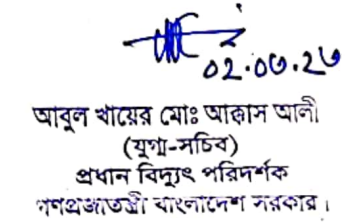 ০২.০৩.২৩
আবুল খায়ের মোঃ আক্কাস আলী
(যুগ্ম-সচিব)
প্রধান বিদ্যুৎ পরিদর্শক
গণপ্রজাতন্ত্রী বাংলাদেশ সরকার।